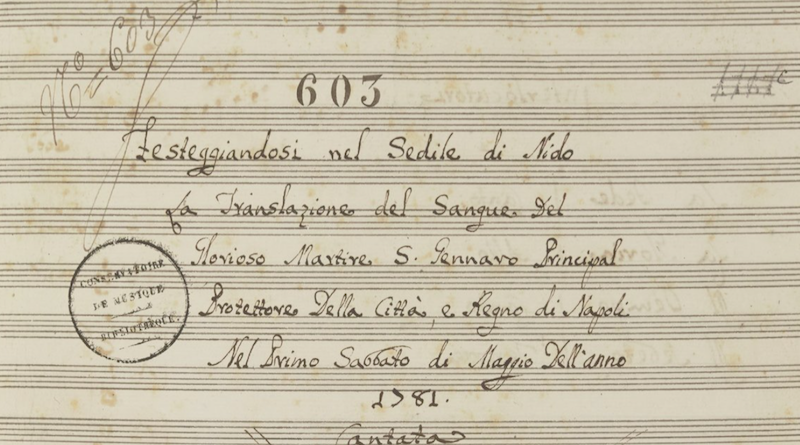 Nº=603
603
Festeggiandosi nel Sedile di Nido
La Translazione del Sangue Del
Glorioso Martire S. Gennaro Principal
Protettore Della Città, e Regno di Napoli
Nel Primo Sabbato di Maggio Dell'anno
1781.
Cantata
CONSERVATOIRE
DE MUSIQUE
BIBLIOTHÈQUE.